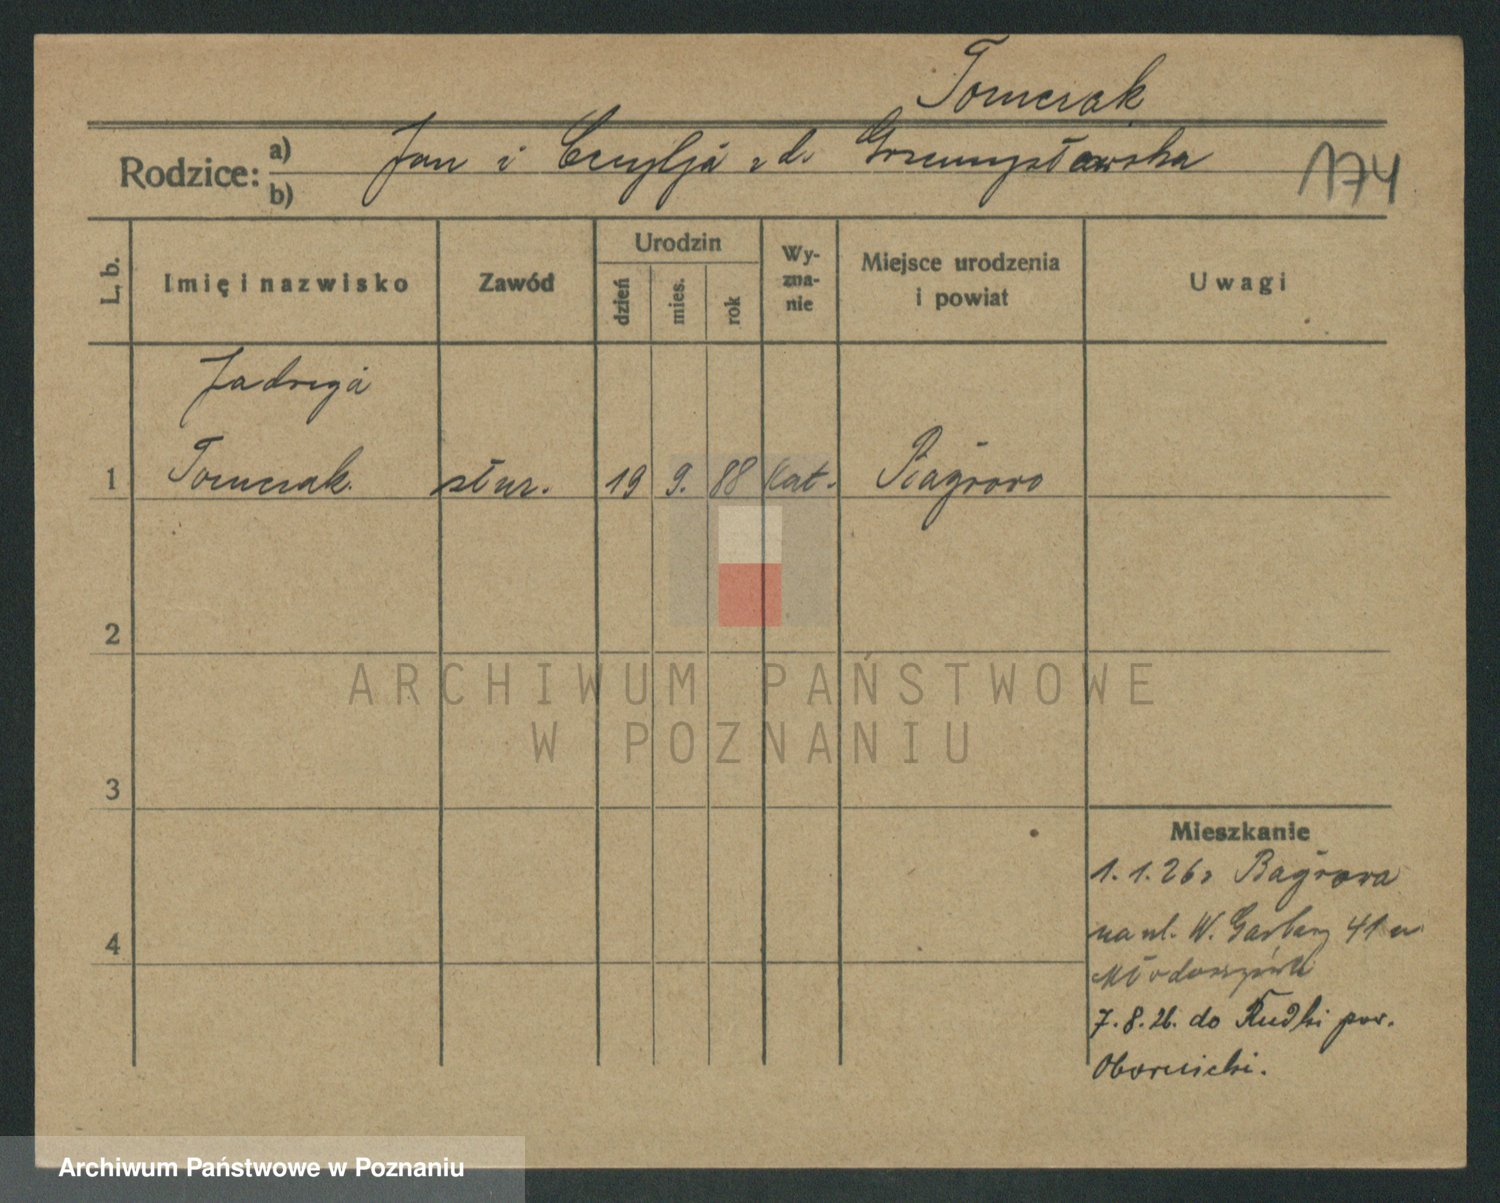 Tomczak
Rodzice: a) b) Jan i Cecylja z d. Grzemysławska
174
L. b. Imię i nazwisko Zawód Urodzin dzień mies. rok Wyznanie Miejsce urodzenia i powiat Uwagi
Jadwiga
1 Tomczak. służ. 19 9. 88 kat.
2
ARCHIWUM PAŃSTWOWE
W POZNANIU
3
Mieszkanie
1. 1. 26 z
4 na ul. W. Garbary 41 u
7. 8. 26. do Rudki pow.
Obornicki.
Archiwum Państwowe w Poznaniu